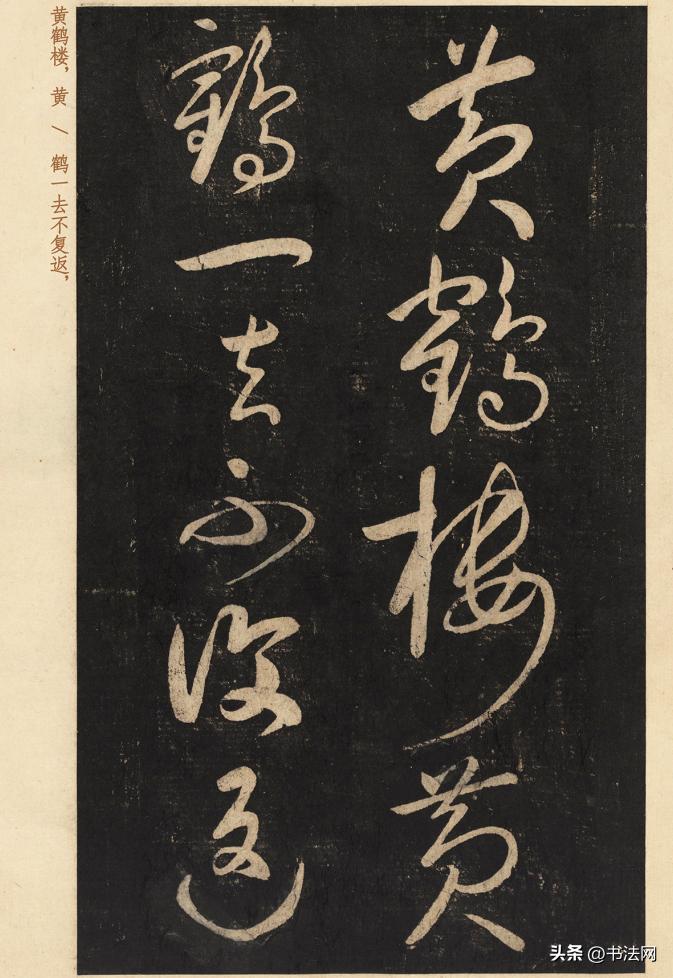 黄鹤楼，黄 \ 鹤一去不复返，
黄鹤楼黄
鹤一去不復返
头条 @书法网